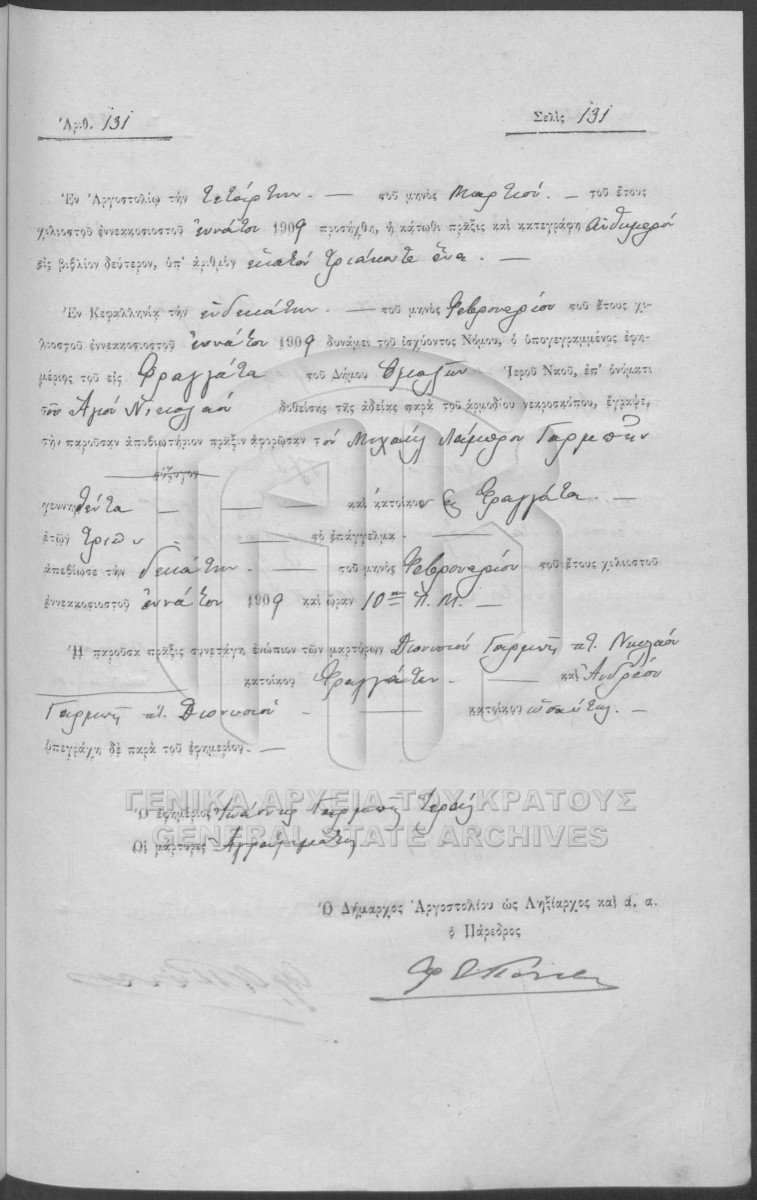 Ἀριθ. 131
Σελὶς 131
Ἐν Ἀργοστολίῳ τὴν τετάρτην — τοῦ μηνὸς Μαρτίου — τοῦ ἔτους
χιλιοστοῦ ἐννεακοσιοστοῦ ἐννάτου 1909 προσήχθη, ἡ κάτωθι πρᾶξις καὶ κατεγράφη αὐθημερόν
εἰς βιβλίον δεύτερον, ὑπ' ἀριθμὸν ἑκατόν τριάκοντα ἕνα. —
Ἐν Κεφαλληνίᾳ τὴν ἑνδεκάτην — τοῦ μηνὸς Φεβρουαρίου τοῦ ἔτους χι-
λιοστοῦ ἐννεακοσιοστοῦ ἐννάτου 1909 δυνάμει τοῦ ἰσχύοντος Νόμου, ὁ ὑπογεγραμμένος ἐφη-
μέριος τοῦ εἰς Φραγγάτα τοῦ Δήμου Ὁμαλῶν Ἱεροῦ Ναοῦ, ἐπ' ὀνόματι
τοῦ Ἁγίου Νικολάου δοθείσης τῆς ἀδείας παρὰ τοῦ ἁρμοδίου νεκροσκόπου, ἔγραψε,
τὴν παροῦσαν ἀποβιωτήριον πρᾶξιν ἀφορῶσαν τόν Μιχαήλ Λάμπρου Γαρμπῆν
σύζυγον
γεννηθέντα — — — καὶ κάτοικον εἰς Φραγγάτα. —
ἐτῶν τριῶν — τὸ ἐπάγγελμα — —
ἀπεβίωσε τὴν δεκάτην — τοῦ μηνὸς Φεβρουαρίου τοῦ ἔτους χιλιοστοῦ
ἐννεακοσιοστοῦ ἐννάτου 1909 καὶ ὥραν 10ην π.μ. —
Ἡ παροῦσα πρᾶξις συνετάγη ἐνώπιον τῶν μαρτύρων Διονυσίου Γαρμπῆ π. Νικολάου
κατοίκου Φραγγάτων — καὶ Ἀνδρέου
Γαρμπῆ π. Διονυσίου — κατοίκου ὡσαύτως. —
ὑπεγράφη δὲ παρὰ τοῦ ἐφημερίου. —
ΓΕΝΙΚΑ ΑΡΧΕΙΑ ΤΟΥ ΚΡΑΤΟΥΣ
Ὁ ἐφημέριος Ἰωάννης Γαρμπῆς Ἱερεύς
GENERAL STATE ARCHIVES
Οἱ μάρτυρες Ἀγράμματοι
Ὁ Δήμαρχος Ἀργοστολίου ὡς Ληξίαρχος καὶ ἀ. ἀ.
ὁ Πάρεδρος